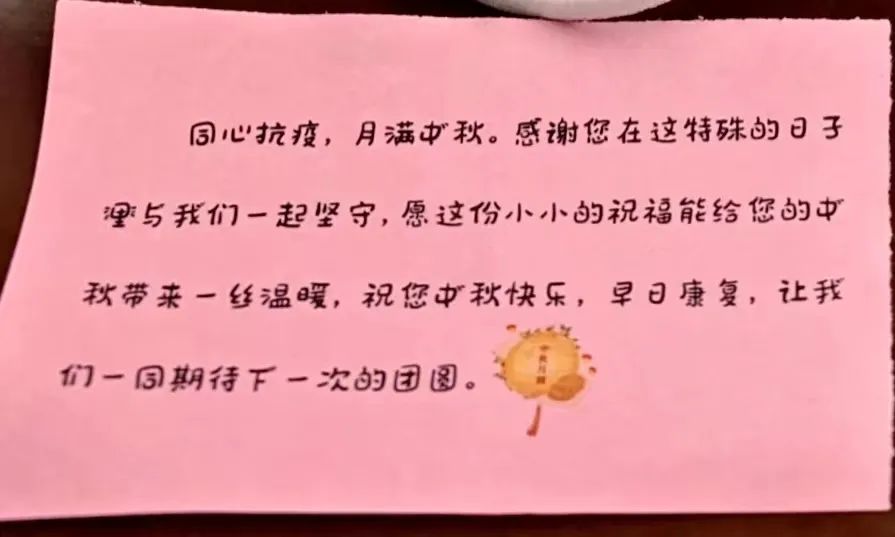 同心抗疫，月满中秋。感谢您在这特殊的日子
裡与我们一起坚守，愿这份小小的祝福能给您的中
秋带来一丝温暖，祝您中秋快乐，早日康复，让我
们一同期待下一次的团圆。